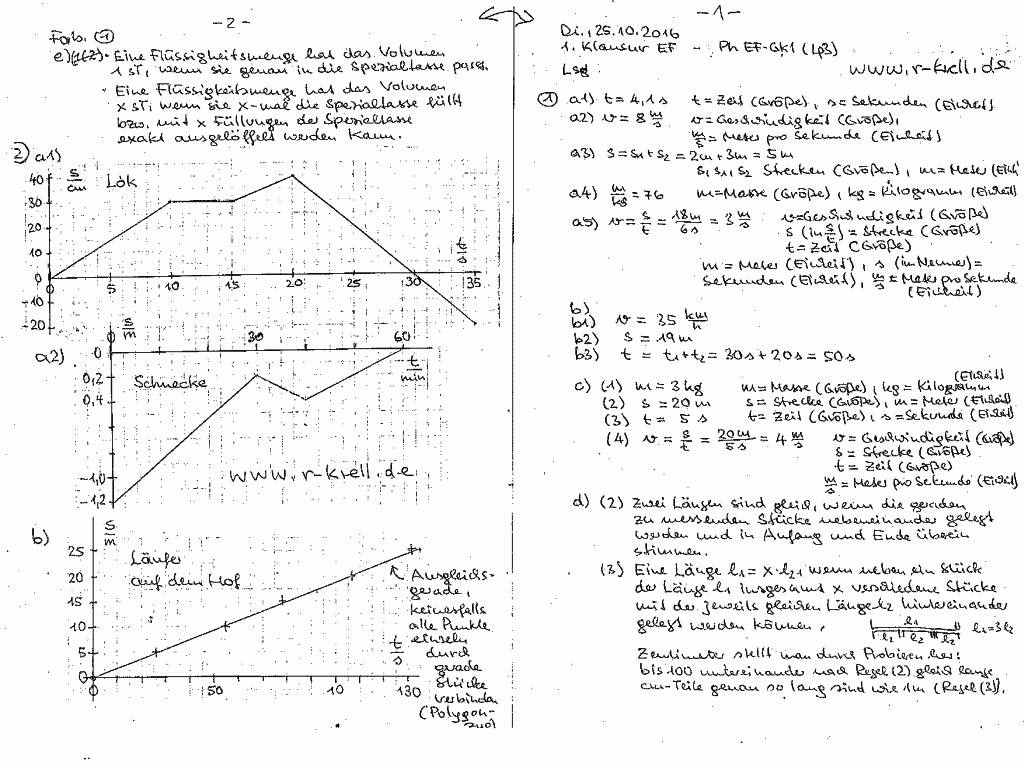 - 2 -
Forts. ①
e) (1&2) · Eine Flüssigkeitsmenge hat das Volumen
1 sT, wenn sie genau in die Spezialtasse passt.
· Eine Flüssigkeitsmenge hat das Volumen
x sT, wenn sie x-mal die Spezialtasse füllt
bzw. mit x Füllungen der Spezialtasse
exakt ausgelöffelt werden kann.
2) a1)
s/cm
Lok
40
30
20
10
0
-10
-20
0 5 10 15 20 25 30 35
t/s
a2)
s/m
0 30 60
t/min
Schnecke
0
0,2
0,4
-1,0
-1,2
www.r-krell.de
b)
s/m
Läufer
auf dem Hof
25
20
15
10
5
0
0 50 10 130
t/s
Ausgleichs-
gerade,
keinesfalls
alle Punkte
einzeln
durch
gerade
Stücke
verbinden
(Polygon-
zug)
- 1 -
Di., 25.10.2016
1. Klausur EF - Ph EF-GK1 (Lp3)
www.r-krell.de
Lsg
① a1) t = 4,1 s t = Zeit (Größe), s = Sekunden (Einheit)
a2) v = 8 m/s v = Geschwindigkeit (Größe),
m/s = Meter pro Sekunde (Einheit)
a3) s = s1 + s2 = 2m + 3m = 5m
s, s1, s2 Strecken (Größe), m = Meter (Einh
a4) m/kg = 76 m = Masse (Größe), kg = Kilogramm (Einheit)
a5) v = s/t = 18m/6s = 3 m/s v = Geschwindigkeit (Größe)
s (in s/t) = Strecke (Größe)
t = Zeit (Größe)
m = Meter (Einheit), s (im Nenner) =
Sekunden (Einheit), m/s = Meter pro Sekunde
(Einheit)
b)
b1) v = 35 km/h
b2) s = 19m
b3) t = t1 + t2 = 30s + 20s = 50s
c) (1) m = 3 kg m = Masse (Größe), kg = Kilogramm (Einheit)
(2) s = 20 m s = Strecke (Größe), m = Meter (Einheit)
(3) t = 5 s t = Zeit (Größe), s = Sekunde (Einheit)
(4) v = s/t = 20m/5s = 4 m/s v = Geschwindigkeit (Größe)
s = Strecke (Größe)
t = Zeit (Größe)
m/s = Meter pro Sekunde (Einheit)
d) (2) Zwei Längen sind gleich, wenn die geraden
zu messenden Stücke nebeneinander gelegt
werden und in Anfang und Ende überein
stimmen.
(3) Eine Länge l1 = x·l2, wenn neben ein Stück
der Länge l1 insgesamt x verschiedene Stücke
mit der jeweils gleichen Länge l2 hintereinander
gelegt werden können.
l1
l2 l2 l2
l1 = 3l2
Zentimeter stellt man durch Probieren her:
bis 100 untereinander nach Regel (2) gleich lange
cm-Teile genau so lang sind wie 1m (Regel (3)).